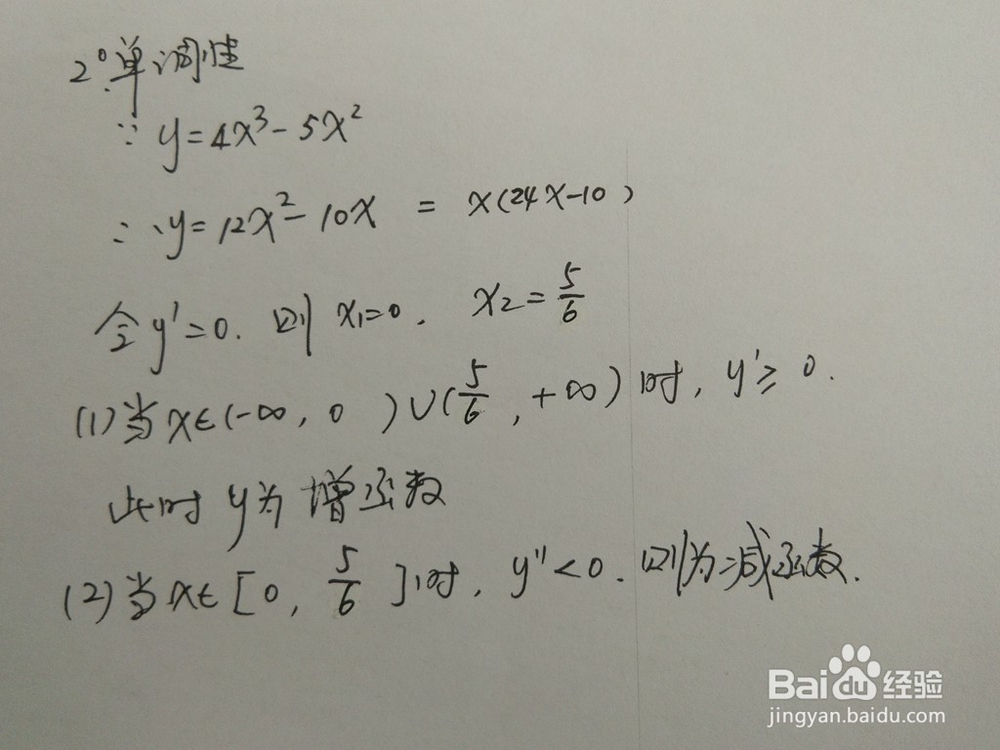 2° 单调性
∵ y=4x³-5x²
∴ y=12x²-10x = x(24x-10)
令y'=0. 则 x₁=0. x₂=5/6
(1)当x∈(-∞, 0 )∪(5/6, +∞)时, y'≥0.
此时 y为 增函数
(2)当x∈[0, 5/6]时, y''<0. 则为减函数.
Baidu经验
jingyan.baidu.com